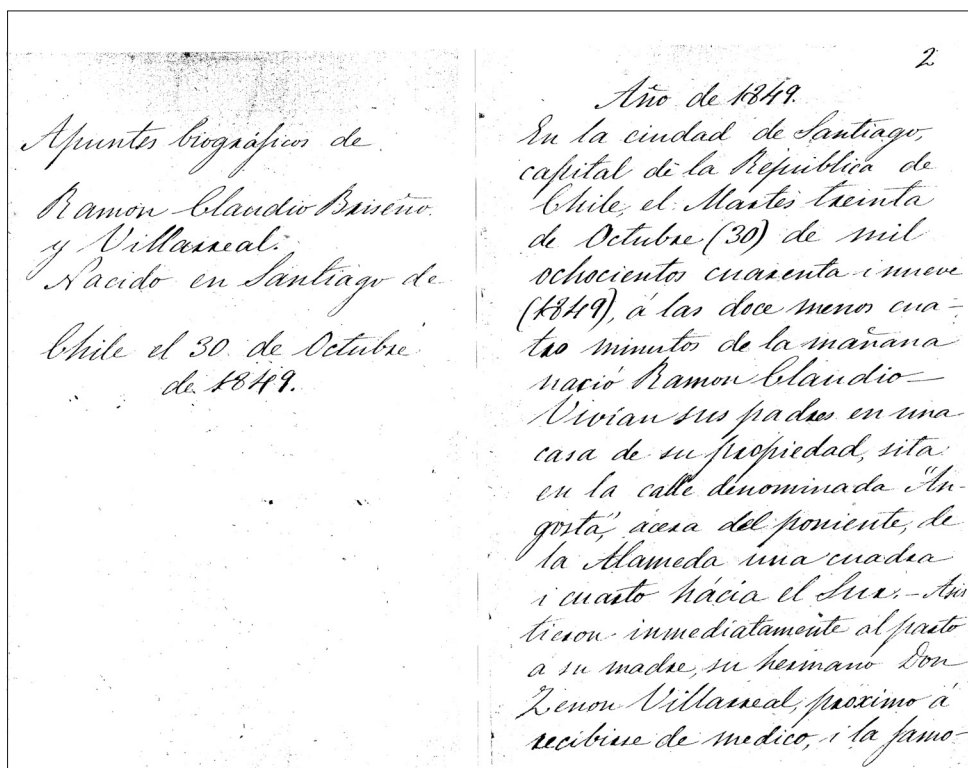 Apuntes biográficos de
Ramon Claudio Briseño
y Villarreal.
Nacido en Santiago de
Chile el 30 de Octubre
de 1849.
2
Año de 1849.
En la ciudad de Santiago,
capital de la República de
Chile, el Martes treinta
de Octubre (30) de mil
ochocientos cuarenta i nueve
(1849), á las doce menos cua-
tro minutos de la mañana
nació Ramon Claudio—
Vivian sus padres en una
casa de su propiedad, sita
en la calle denominada "An-
gosta", acera del poniente, de
la Alameda una cuadra
i cuarto hácia el Sur.—Asis
tieron inmediatamente al parto
a su madre, su hermano Don
Zenon Villarreal, próximo á
recibirse de medico, i la famo-